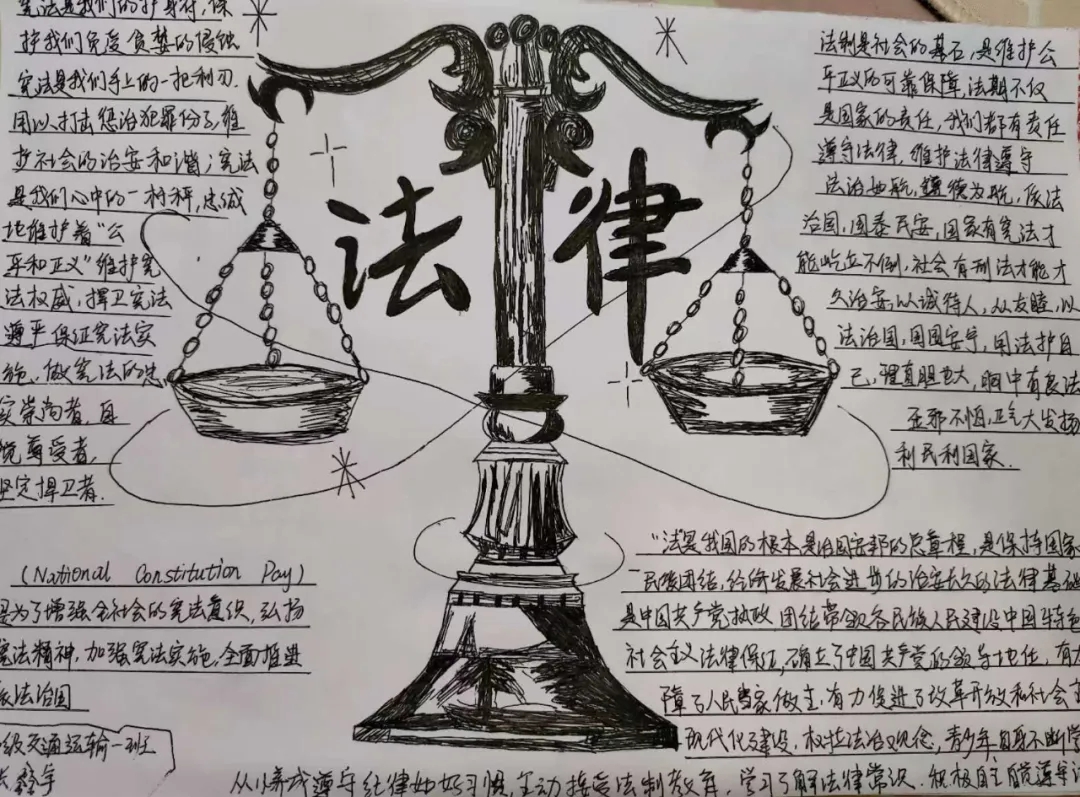 宪法是我们的护身符,保
护我们免受贪婪的侵蚀
宪法是我们手上的一把利刃.
用以打击惩治犯罪份子,维
护社会的治安和谐;宪法
是我们心中的一杆秤,忠诚
地维护着“公
平和正义”维护宪
法权威,捍卫宪法
尊严保证宪法实
施、做宪法的忠
实崇尚者,自
觉尊受者,
坚定捍卫者.
法律
法制是社会的基石,是维护公
平正义的可靠保障,法期不仅
是国家的责任,我们都有责任
遵守法律,维护法律遵守
法治 航,德为航,依法
治国,国泰民安,国家有宪法才
能屹立不倒,社会有刑法才能才
久治安,以诚待人,从友睦,以
法治国,国国安宁,用法护自
己,理直胆也大,胸中有良法
歪邪不怕,正气大发扬
利民利国家.
(National Constitution Day)
是为了增强全社会的宪法意识,弘扬
宪法精神,加强宪法实施,全面推进
依法治国
级交通运输一班
“法是我国的根本是治国安邦的总章程,是保持国家
民族团结,经济发展社会进步的治安长久的法律基础
是中国共产党执政团结带领各民族人民建设中国特色
社会主义法律保证,确立了中国共产党的领导地位,有力
障了人民当家做主,有力促进了改革开放和社会主
现代化建设、权拉法治观念,青少年自身不断学
从小养成遵守纪律的好习惯,主动接受法制教育,学习了解法律常识、积极自主自觉遵守法